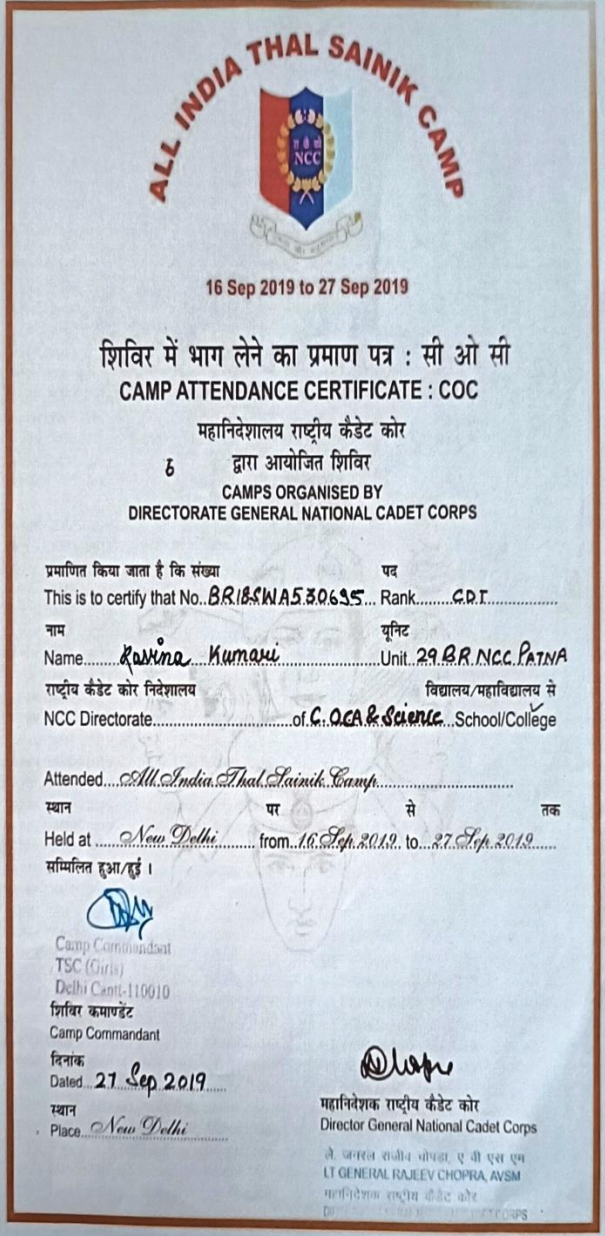 ALL INDIA THAL SAINIK CAMP
रा कै को
NCC
16 Sep 2019 to 27 Sep 2019
शिविर में भाग लेने का प्रमाण पत्र : सी ओ सी
CAMP ATTENDANCE CERTIFICATE : COC
महानिदेशालय राष्ट्रीय कैडेट कोर
द्वारा आयोजित शिविर
CAMPS ORGANISED BY
DIRECTORATE GENERAL NATIONAL CADET CORPS
प्रमाणित किया जाता है कि संख्या पद
This is to certify that No. BR18SWA530695 Rank CDT
नाम यूनिट
Name Kumari Unit 29 BR NCC PATNA
राष्ट्रीय कैडेट कोर निदेशालय विद्यालय/महाविद्यालय से
NCC Directorate of C. OCA & Science School/College
Attended All India Thal Sainik Camp
स्थान पर से तक
Held at New Delhi from 16 Sep 2019 to 27 Sep 2019
सम्मिलित हुआ/हुई ।
Camp Commandant
TSC (Girls)
Delhi Cantt-110010
शिविर कमाण्डेंट
Camp Commandant
दिनांक
Dated 27 Sep 2019
स्थान
Place New Delhi
महानिदेशक राष्ट्रीय कैडेट कोर
Director General National Cadet Corps
ले. जनरल राजीव चोपड़ा, ए वी एस एम
LT GENERAL RAJEEV CHOPRA, AVSM
महानिदेशक राष्ट्रीय कैडेट कोर
CORPS